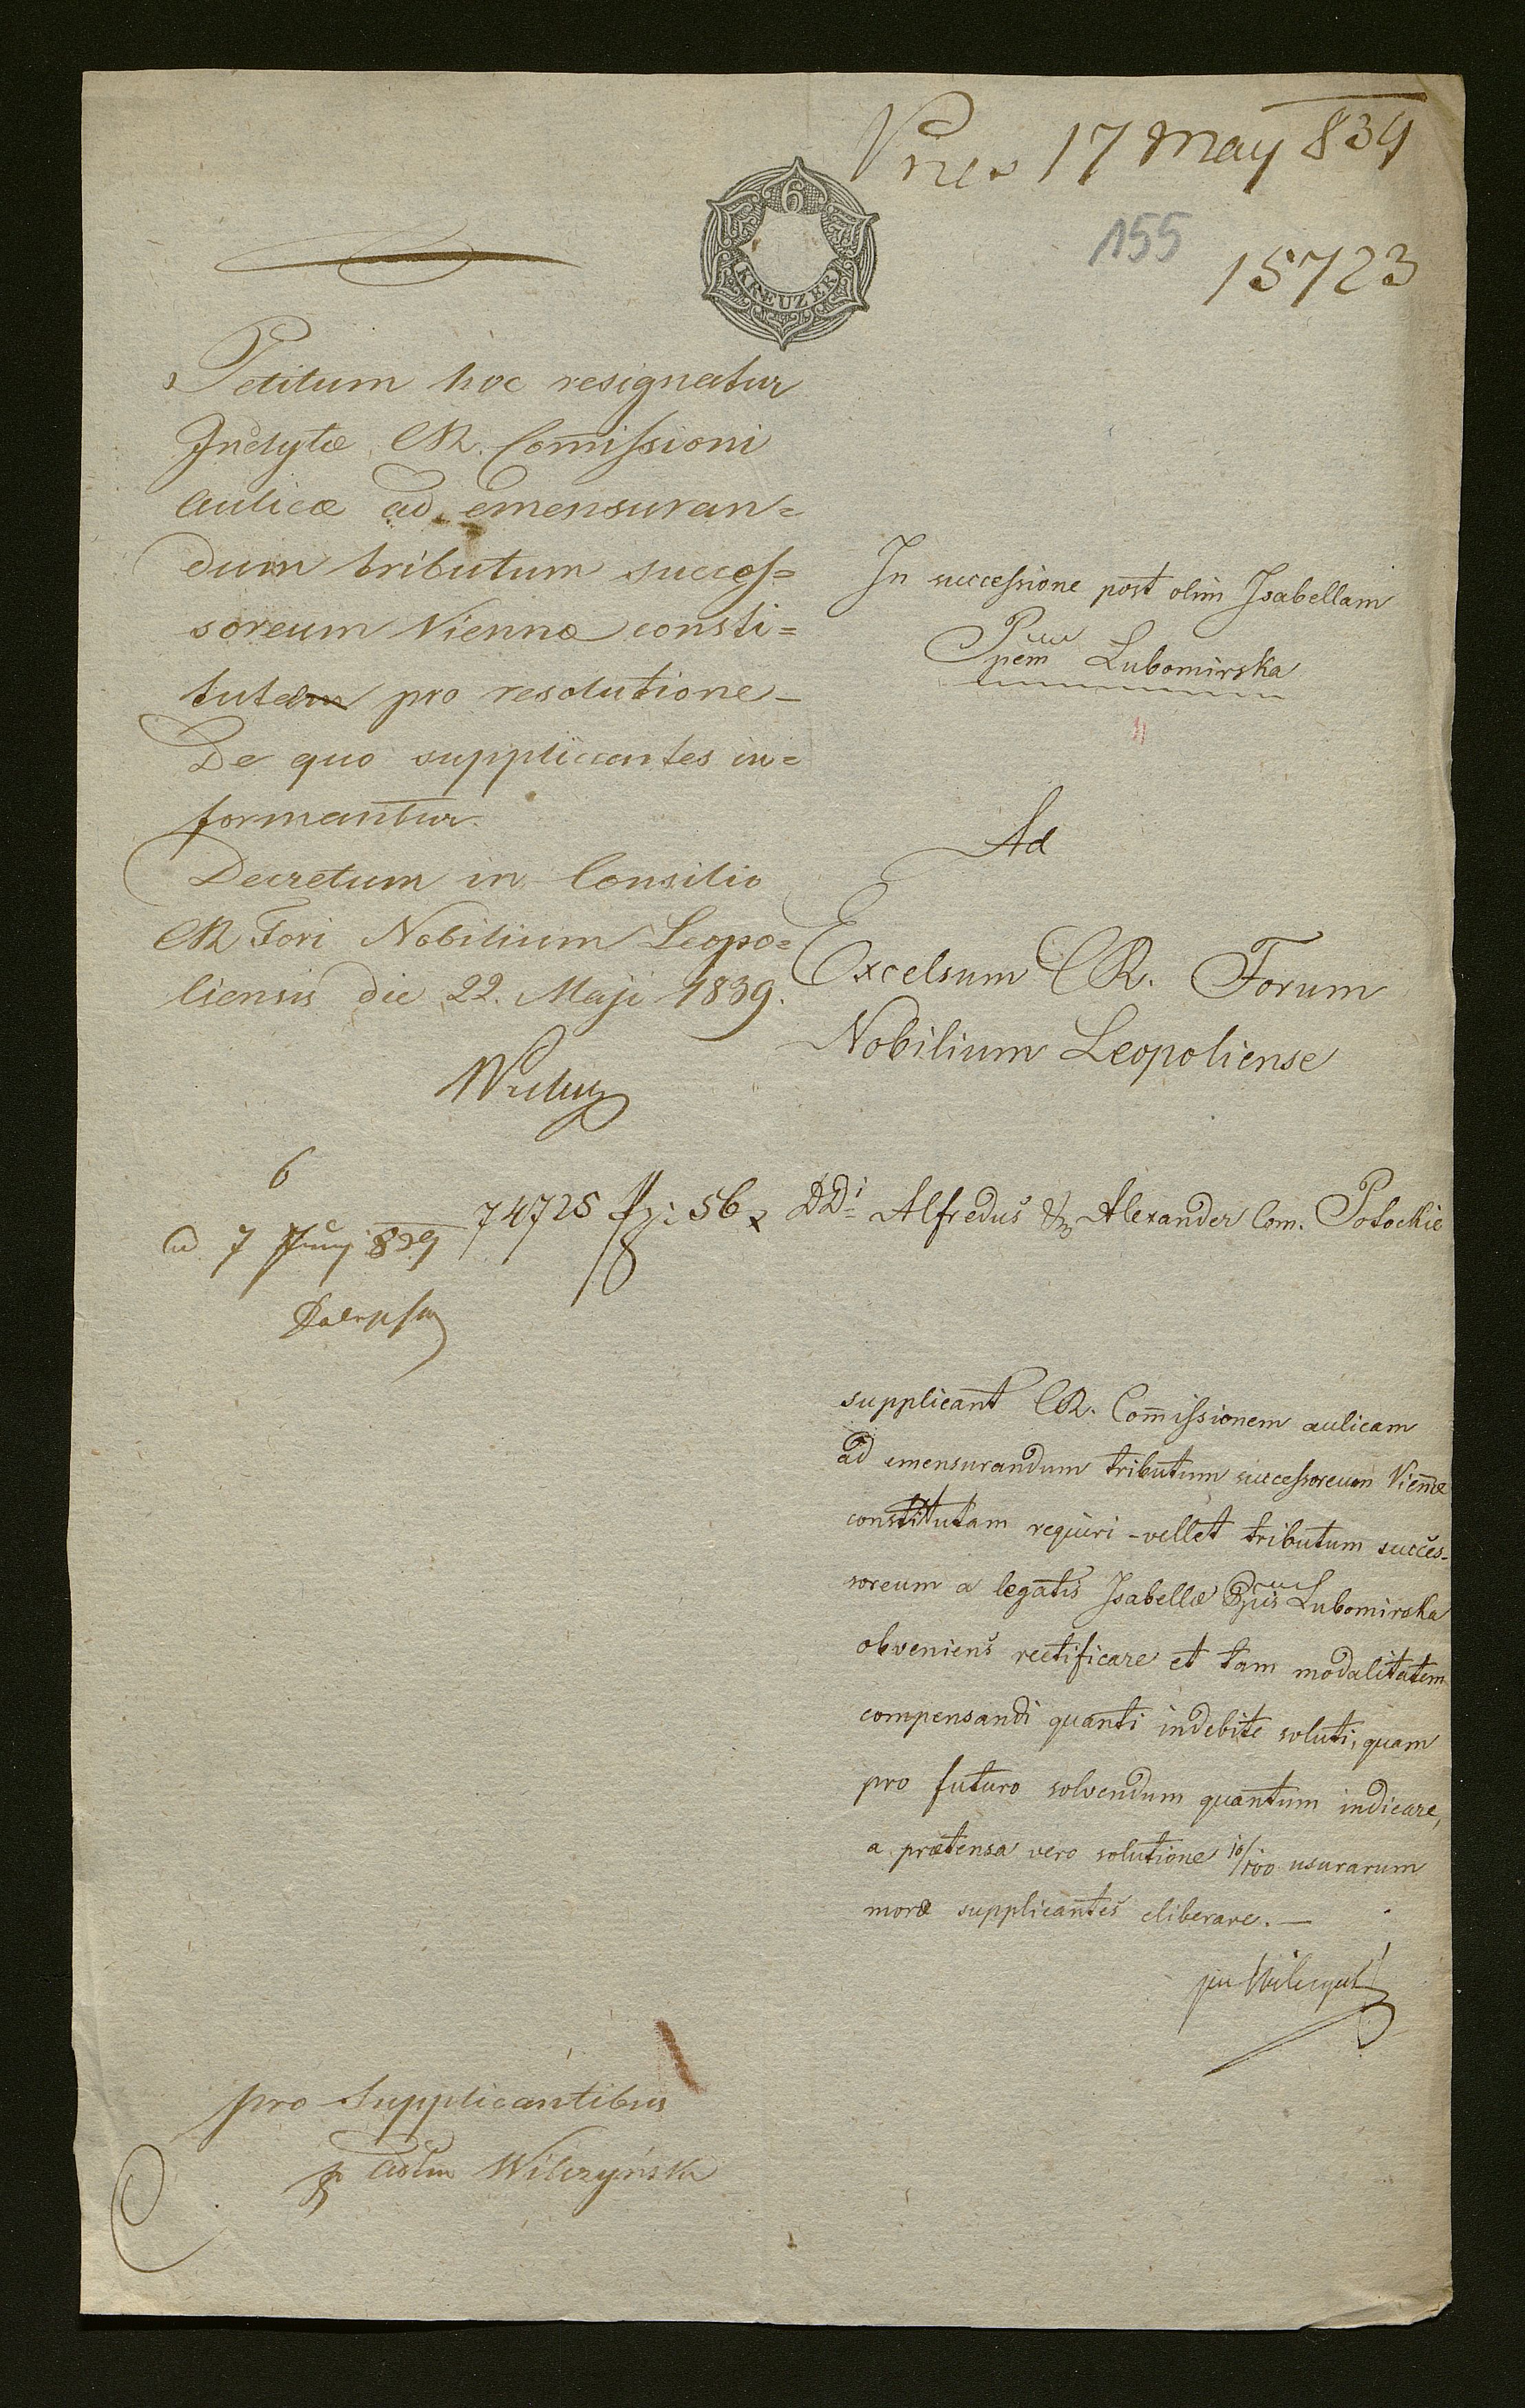 Pres 17 May 839
6
KREUZER
155
15723
Petitum hoc resignatur
Inclytæ CR. Com̄issioni
aulicæ ad emensuran=
dum tributum succes=
soreum Viennæ consti=
tutæ pro resolutione_
De quo supplicantes in=
formantur.
Decretum in Consilio
CR Fori Nobilium Leopo=
liensis die 22. Maji 1839.
In successione post olim Isabellam
Ppem Lubomirska
Ad
Excelsum CR. Forum
Nobilium Leopoliense
6
ad 7 Juny 839
74725 56 x
DDi Alfredus & Alexander Com. Potockie
supplicant CR. Com̄issionem aulicam
ad emensurandum tributum successoreum Vien̄æ
constitutam requiri - vellet tributum succes-
soreum a legatis Isabellæ Ppis Lubomirska
obveniens rectificare et tam modalitatem
compensandi quanti indebite soluti, quam
pro futuro solvendum quantum indicare,
a prætensa vero solutione 10/100 usurarum
moræ supplicantes eliberare. —
pro Supplicantibus
p adm Wilczyński